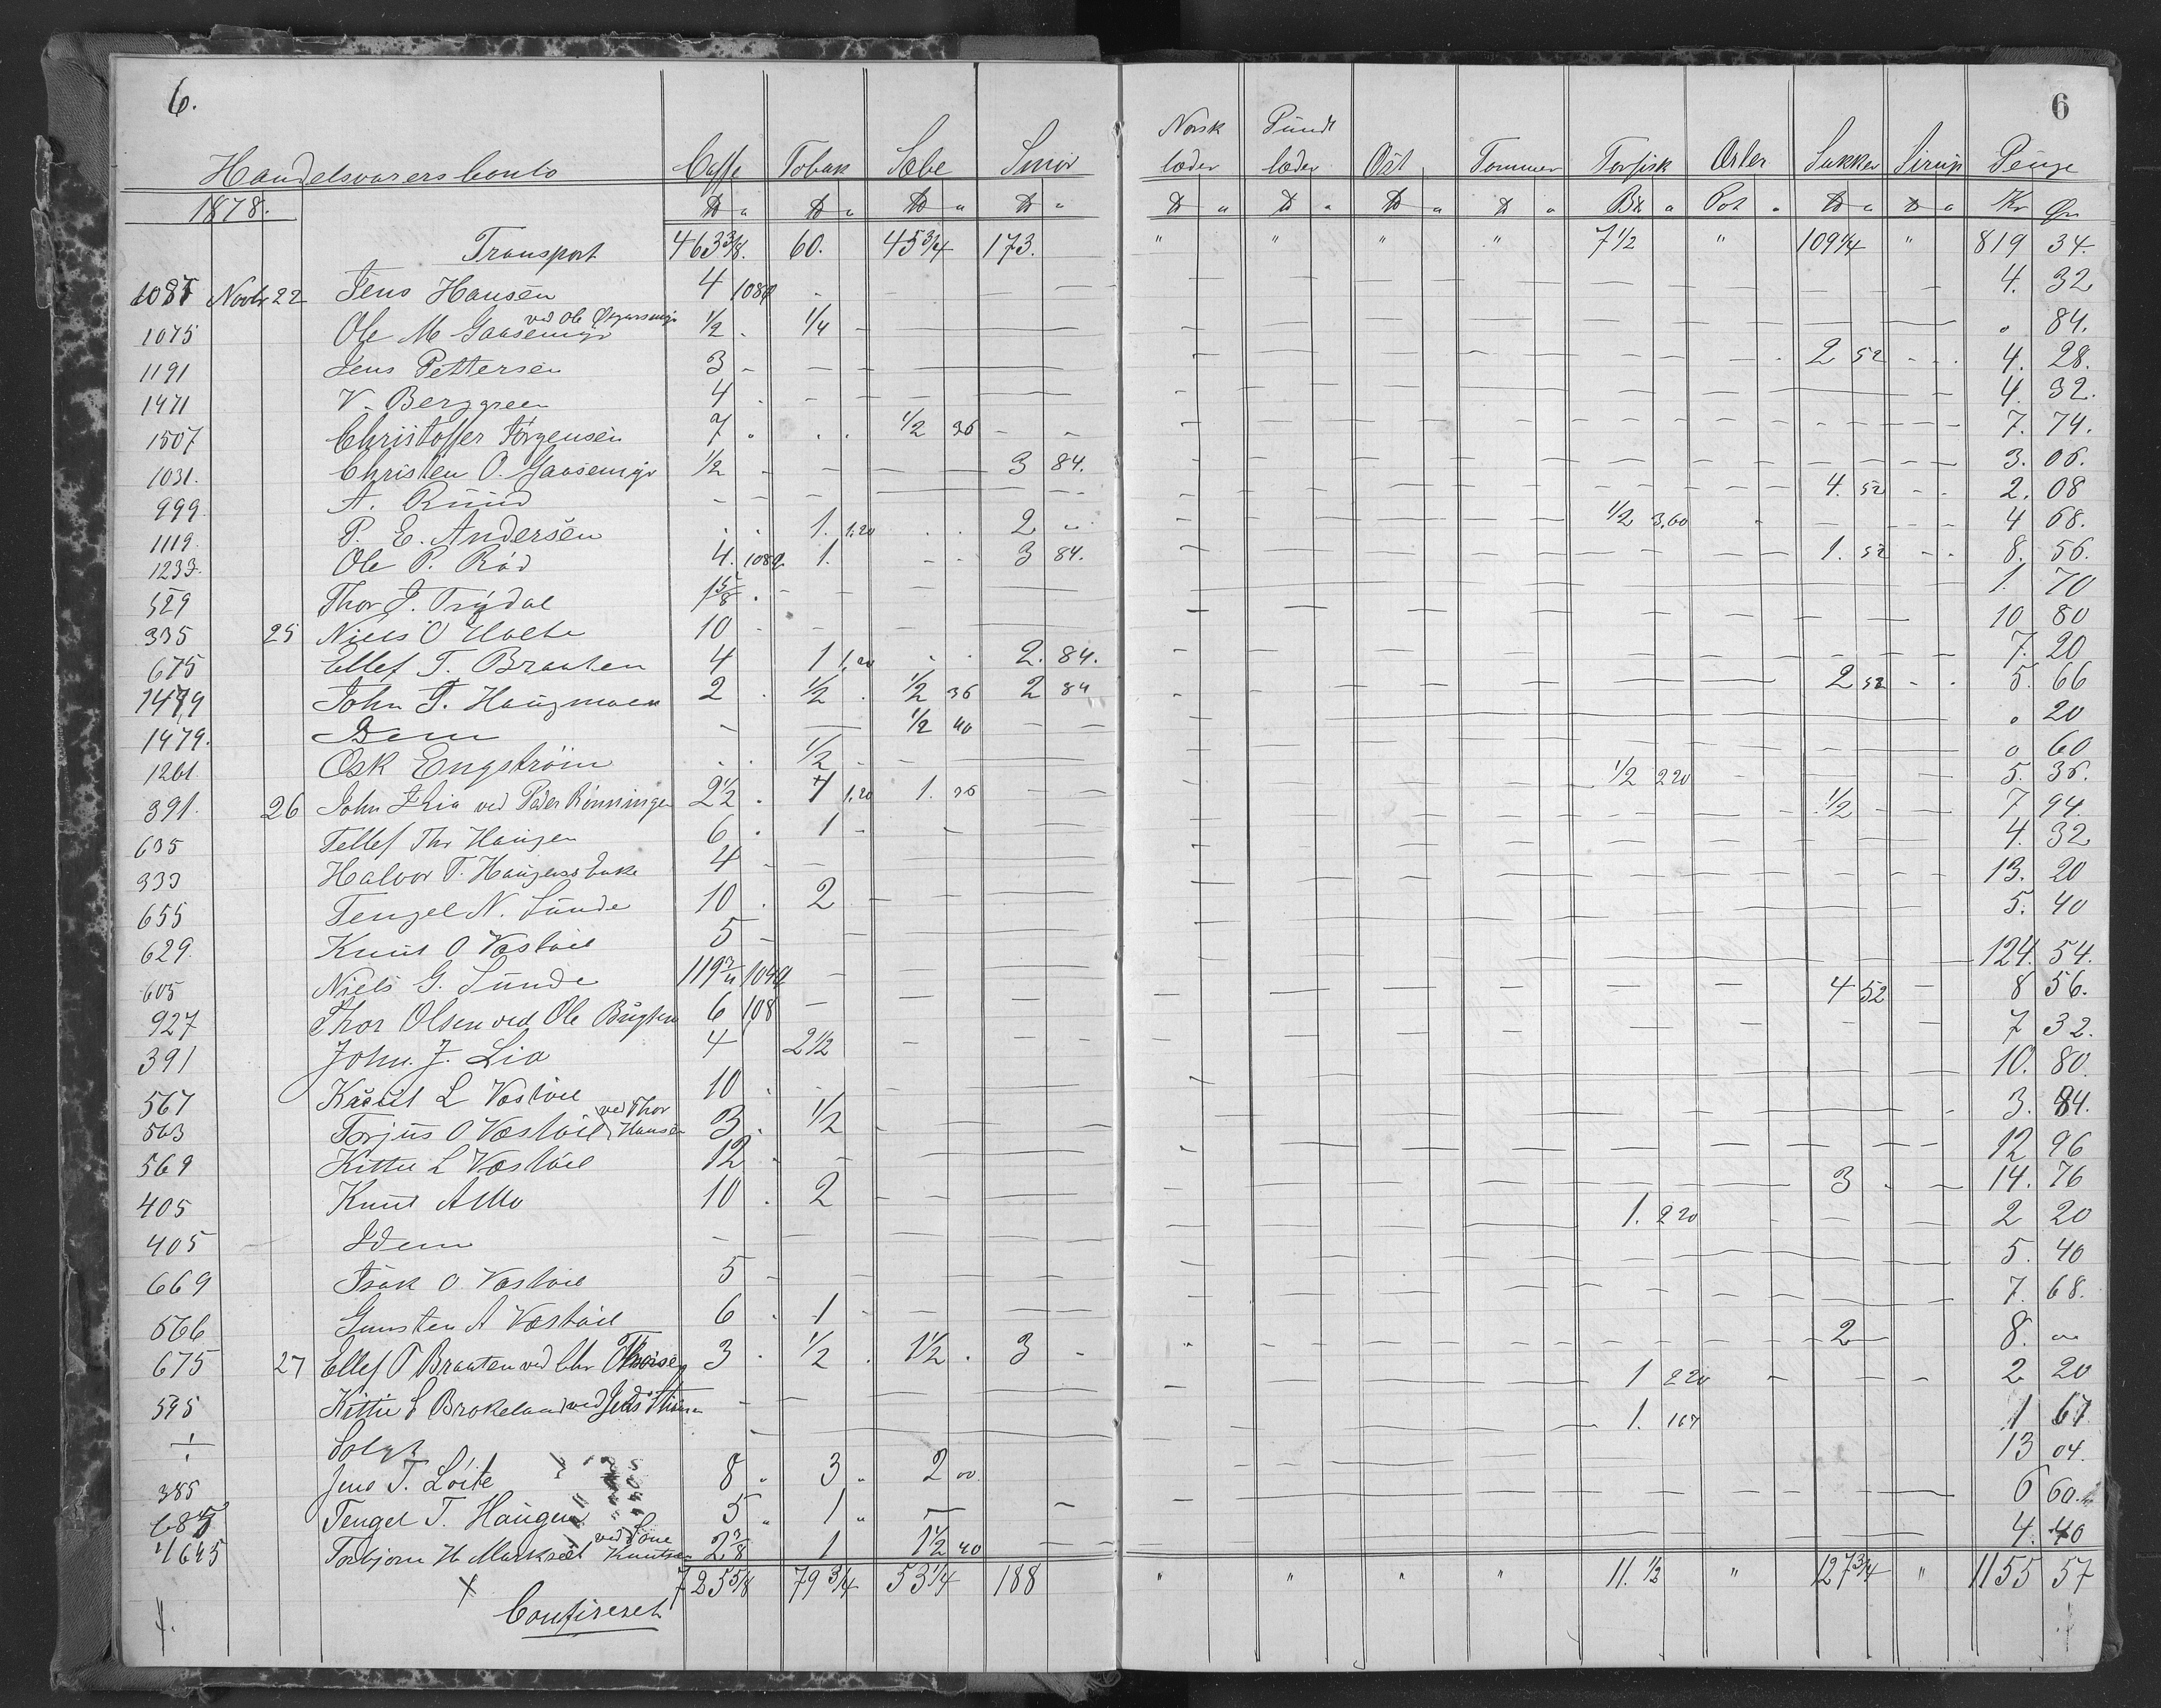 6. 6
Norsk Pundt
Handelsvarers Conto Caffe Tobak Sæbe Smør læder læder Ost Tommer Torfisk Oster Sukker Sirup Penge
1878. ℔ " ℔ " ℔ " ℔ " ℔ " ℔ " ℔ " ℔ " " Pot " ℔ " ℔ " Kr Ør
Transport 463 3/8. 60. 45 3/4 173. " " " " 7 1/2 " 109 1/4 " 819 34.
1087 Novbr 22 Jens Hansen 4 108 4. 32
ved Ole
1075 Ole M Gaasemyr 1/2 1/4 84.
1191 Jens Pettersen 3 2 52 4. 28.
1471 V. Berggreen 4 4. 32.
1507 Christoffer Jörgensen 7 1/2 36 7. 74.
1031. Christen O. Gaasemyr 1/2 3 84. 3. 06.
999. A. Ruud 4. 52 2. 08
1119. P. E. Andersen 1. 1,20 2 " 1/2 3,60 4 68.
1233. Ole P. Röd 4. 108 1. 3 84. 1. 52 8. 56.
529 Thor J. Trydal 1 5/8 1. 70
335 25 Niels O Holte 10 10 80
675 Ellef T. Braaten 4 1 1,20 2. 84. 7. 20
1479 John T. Haugmoen 2 1/2 1/2 36 2 84 2 52 5. 66
1479. Dem 1/2 40 20
1261. Osk Engström 1/2 0 60
391. 26 John J Lia ved Peder Rönningen 2 1/2 1 1,20 1. 36 1/2 2 20 5. 36.
635 Tellef Thr Haugen 6 1 1/2 7 94.
333 Halvor T. Haugersbakk 4 4. 32
655 Tengel N. Sunde 10 2 13. 20
629. Knut O Vastöil 5 5. 40
605 Niels G. Sunde 119 3/4 104 124. 54.
927 Thor Olsen ved Ole 6 108 4 52 8 56.
391 John. J. Lia 4 2 1/2 7 32.
567 L Vastöil 10 10. 80.
ved Thor
563 Torjus O Vastöil Hansen 3 1/2 3. 84.
569 Kittil L Vastöil 12 12 96
405 Knut A Mo 10 2 3 14. 76
405 Idem 1. 2 20 2 20
669 Isak O Vastöil 5 5. 40
566 Gunsten A Vastöil 6 1 7. 68.
675 27 Ellef T Braaten ved Chr 3 1/2 1 1/2 3 2 8. "
595 Kittil S Brokeland ved 1 2 20 2 20
÷ Solgt 1. 167 1 67
385 Jens T. Löite 8 3 2 13 04.
685 Tengel T. Haugen 5 1 6 60.
ved Sone
1645 Torbjorn H. Knutsen 2 3/8 1 1 1/2 40 4. 40
725 5/8 79 3/4 53 1/4 188 " " " " 11. 1/2 " 127 3/4 " 1155 57
Confireret